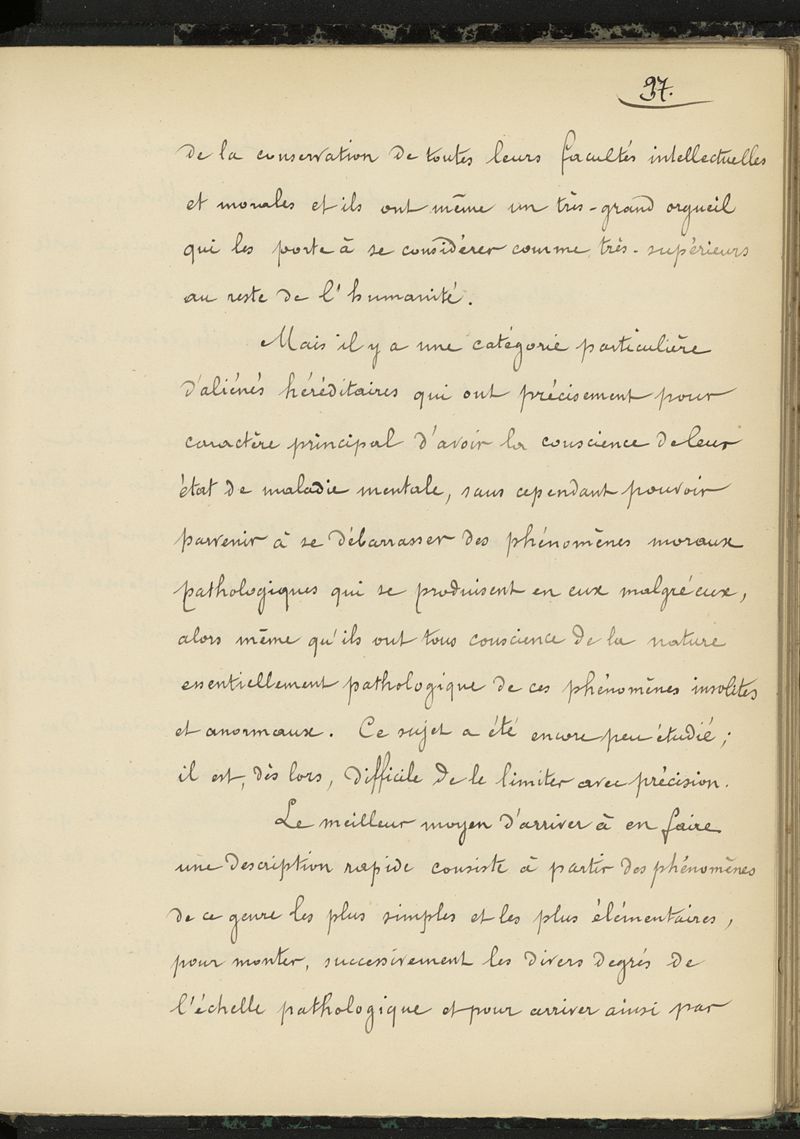 97.
de la conservation de toutes leurs facultés intellectuelles
et morales et ils ont même un très-grand orgueil
qui les porte à se considérer comme très-supérieurs
au reste de l'humanité.
Mais il y a une catégorie particulière
d'aliénés héréditaires qui ont précisement pour
caractère principal d'avoir la conscience de leur
état de maladie mentale, sans cependant pouvoir
parvenir à se débarrasser des phénomènes moraux
pathologiques qui se produisent en eux malgré eux,
alors même qu'ils ont tous conscience de la nature
essentiellement pathologique de ces phénomènes insolites
et anormaux. Ce sujet a été encore peu étudié ;
il est, dès lors, difficile de le limiter avec précision.
Le meilleur moyen d'arriver à en faire
une description rapide consiste à partir des phénomènes
de ce genre les plus simples et les plus élémentaires,
pour monter, successivement les divers degrés de
l'échelle pathologique et pour arriver ainsi par